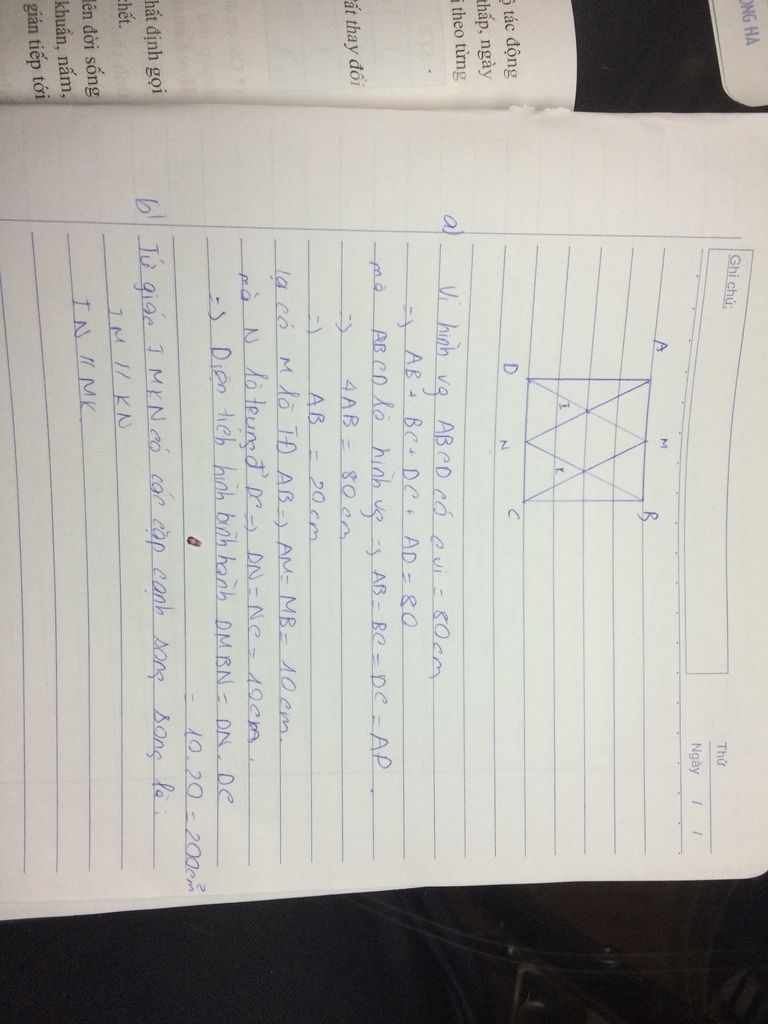 ONG HA
ộ tác động
thấp, ngày
i theo từng
ất thay đổi
hất định gọi
chết.
lên đời sống
khuẩn, nấm,
gián tiếp tới
Ghi chú:
Thứ
Ngày / /
A M B
I K
D N C
a) Vì hình vg ABCD có c vi = 80cm
=> AB + BC + DC + AD = 80
mà ABCD là hình vg => AB = BC = DC = AD.
=> 4AB = 80cm
=> AB = 20cm
lạ có M là TĐ AB => AM = MB = 10cm.
mà N là trung đ' DC => DN = NC = 10cm.
=> Diện tích hình bình hành DMBN = DN. DC
= 10.20 = 200cm²
b) Tứ giác IMKN có các cặp cạnh song song là:
IM // KN
IN // MK.